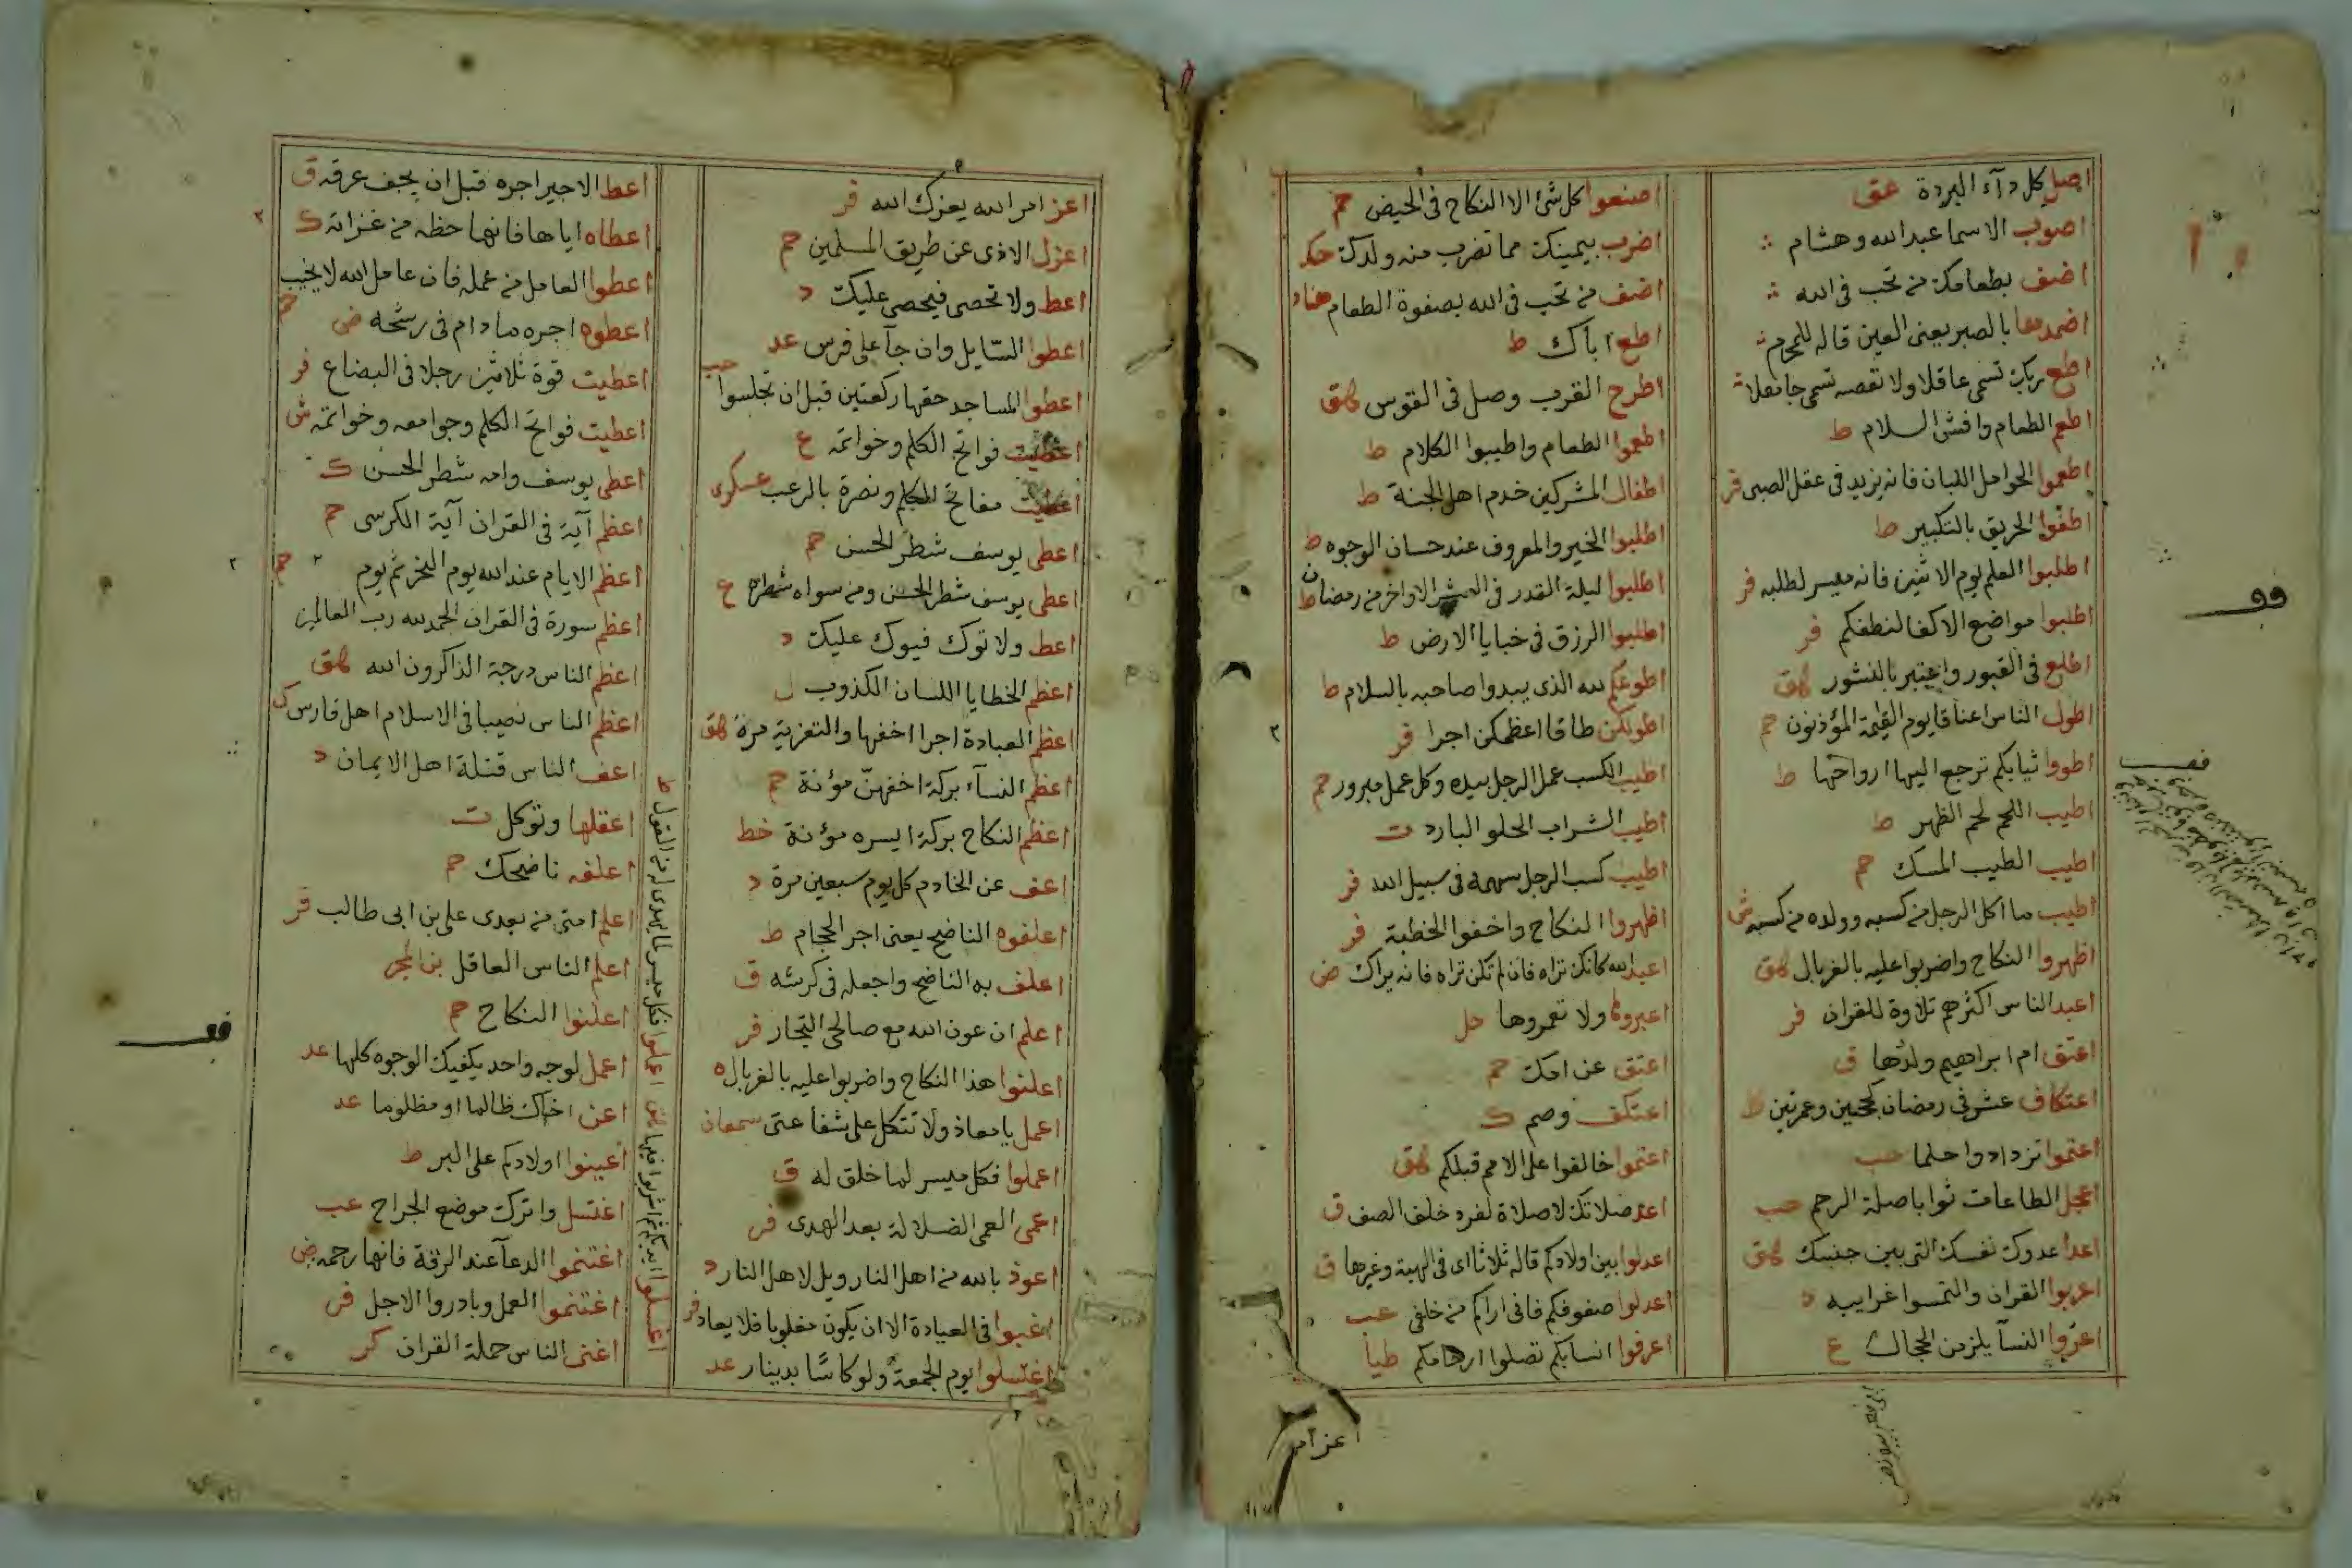 اصل كل دآء البردة عق
اصوب الاسما عبدالله وهشام
اضف بطعامك من تحب فى الله
اضمدها بالصبر يعنى العين قاله للمحرم
اطع ربك تسمى عاقلا ولا تعصه تسمى جاهلا
اطعم الطعام وافش السلام ط
اطعموا الحوامل اللبان فانه يزيد فى عقل الصبى فر
اطفوا الحريق بالتكبير ط
اطلبوا العلم يوم الاثنين فانه ميسر لطلبه فر
اطلبوا مواضع الاكفا لنطفكم فر
اطلع فى القبور واعتبر بالنشور هق
اطول الناس اعناقا يوم القيمة المؤذنون حم
اطووا ثيابكم ترجع اليها ارواحها ط
اطيب اللحم لحم الظهر ط
اطيب الطيب المسك حم
اطيب ما اكل الرجل من كسبه وولده من كسبه ش
اظهروا النكاح واضربوا عليه بالغربال هق
اعبد الناس اكثرهم تلاوة للقران فر
اعتق ام ابراهيم ولدها ق
اعتكاف عشر فى رمضان كحجتين وعمرتين ط
اعتموا تزدادوا حلما حب
اعجل الطاعات ثوابا صلة الرحم حب
اعدا عدوك نفسك التى بين جنبيك هق
اعربوا القران والتمسوا غرايبه
اعروا النسآ يلزمن الحجال ع
اصنعوا كل شئ الا النكاح فى الحيض حم
اضرب بيمينك مما تضرب منه ولدك حك
اضف من تحب فى الله بصفوة الطعام هناد
اطع اباك ط
اطرح القرب وصل فى القوس هق
اطعموا الطعام واطيبوا الكلام ط
اطفال المشركين خدم اهل الجنة ط
اطلبوا الخير والمعروف عند حسان الوجوه ط
اطلبوا ليلة القدر فى العشر الاواخر من رمضان ط
اطلبوا الرزق فى خبايا الارض ط
اطوعكم لله الذى يبدوا صاحبه بالسلام ط
اطولكن طاقا اعظمكن اجرا فر
اطيب الكسب عمل الرجل بيده وكل عمل مبرور حم
اطيب الشراب الحلو البارد ت
اطيب كسب الرجل سهمه فى سبيل الله فر
اظهروا النكاح واخفوا الخطبة فر
اعبد الله كانك تراه فان لم تكن تراه فانه يراك ض
اعبروها ولا تعمروها حل
اعتق عن امك حم
اعتكف وصم ك
اعتموا خالفوا على الامم قبلكم هق
اعد صلاتك لا صلاة لفرد خلف الصف ق
اعدلوا بين اولادكم قاله ثلاثا اى فى الهبة وغيرها ق
اعدلوا صفوفكم فانى اراكم من خلفى عب
اعرفوا انسابكم تصلوا ارحامكم طيا
اعز امر
اعز امر الله يعزك الله فر
اعزل الاذى عن طريق المسلمين حم
اعط ولا تحصى فيحصى عليك د
اعطوا السايل وان جآ على فرس عد
اعطوا المساجد حقها ركعتين قبل ان تجلسوا حب
اعطيت فواتح الكلم وخواتمه ع
اعطيت مفاتح الكلم ونصرة بالرعب عسكرى
اعطى يوسف شطر الحسن حم
اعطى يوسف شطر الحسن ومن سواه شطره ع
اعط ولا توك فيوك عليك د
اعظم الخطايا اللسان الكذوب ل
اعظم العبادة اجرا اخفها والتعزية مرة هق
اعظم النسآء بركة اخفهن مؤنة حم
اعظم النكاح بركة ايسره مؤنة خط
اعف عن الخادم كل يوم سبعين مرة د
اعلفوه الناضح يعنى اجر الحجام ط
اعلف به الناضح واجعله فى كرشه ق
اعلم ان عون الله مع صالحى التجار فر
اعلنوا هذا النكاح واضربوا عليه بالغربال ه
اعمل يا معاذ ولا تتكل على شفاعتى سمعان
اعملوا فكل ميسر لما خلق له ق
اعمى العمى الضلالة بعد الهدى فر
اعوذ بالله من اهل النار ويل لاهل النار د
اغبوا فى العيادة الا ان يكون مغلوبا فلا يعاد فر
اغتسلوا يوم الجمعة ولو كاسا بدينار عد
اعط الاجير اجره قبل ان يجف عرقه ق
اعطاه اياها فانها حظه من غزاته ك
اعطوا العامل من عمله فان عامل الله لا يخيب حم
اعطوه اجره ما دام فى رشحه ض
اعطيت قوة ثلاثين رجلا فى البضاع فر
اعطيت فواتح الكلم وجوامعه وخواتمه ش
اعطى يوسف وامه شطر الحسن ك
اعظم آية فى القران آية الكرسى حم
اعظم الايام عند الله يوم النحر ثم يوم حم
اعظم سورة فى القران الحمد لله رب العالمين
اعظم الناس درجة الذاكرون الله هق
اعظم الناس نصيبا فى الاسلام اهل فارس ك
اعف الناس قتلة اهل الايمان د
اعقلها وتوكل ت
اعلفه ناضحك حم
اعلم امتى من بعدى على بن ابى طالب فر
اعلم الناس العاقل
اعلنوا النكاح حم
اعمل لوجه واحد يكفيك الوجوه كلها عد
اعن اخاك ظالما او مظلوما عد
اعينوا اولادكم على البر ط
اغتسل واترك موضع الجراح عب
اغتنموا الدعآ عند الرقة فانها رحمه ض
اغتنموا العمل وبادروا الاجل فر
اغنى الناس حملة القران كر
اغسلوا ايديكم ثم اشربوا فيها
اعملوا فكل ميسر لما يهدى له من القول ط